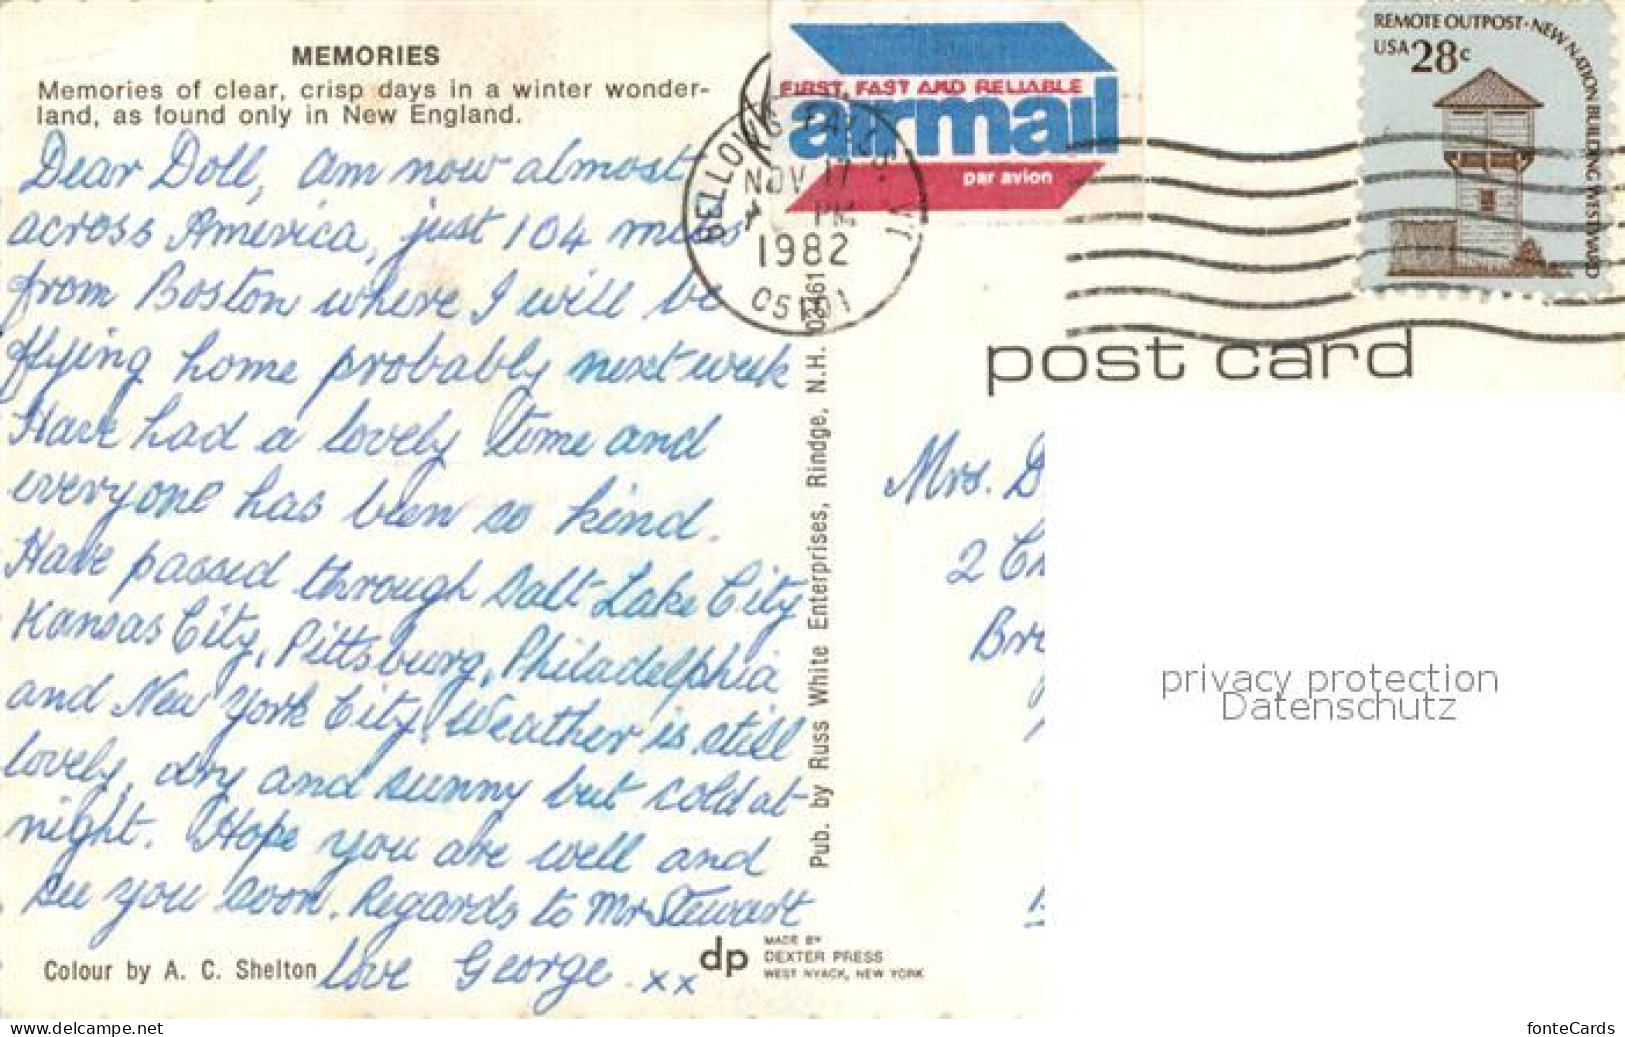 MEMORIES
Memories of clear, crisp days in a winter wonder-
land, as found only in New England.
Dear Doll, am now almost
across America, just 104 miles
from Boston where I will be
flying home probably next week
Have had a lovely time and
everyone has been so kind.
Have passed through Salt Lake City
Kansas City, Pittsburg, Philadelphia
and New York City. Weather is still
lovely, dry and sunny but cold at
night. Hope you are well and
see you soon. Regards to Mr Stewart
love George. xx
Colour by A. C. Shelton
dp
MADE BY
DEXTER PRESS
WEST NYACK, NEW YORK
Pub. by Russ White Enterprises, Rindge, N.H. 03461
FIRST, FAST AND RELIABLE
airmail
par avion
BELLOWS
NOV 17
PM
1982
05101
REMOTE OUTPOST·NEW NATION BUILDING WESTWARD
USA 28c
post card
Mrs. D
2
privacy protection
Datenschutz
www.delcampe.net
fonteCards